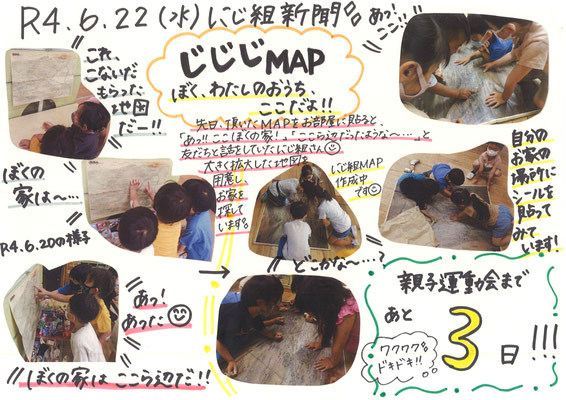 R4.6.22(水)にじ組新聞
あっ!
ここ!!
これ、
こないだ
もらった
地図
だー!!
じじじMAP
ぼく、わたしのおうち、
ここだよ!!
先日、頂いたMAPをお部屋に貼ると、
「あっ!!ここぼくの家!」「ここら辺だったような〜…」と
友だちと話をしていたにじ組さん
大きく拡大した地図を
用意し、
お家を
探して
います。
にじ組MAP
作成中
です
自分の
お家の
場所に
シールを
貼って
みて
います!
ぼくの
家は〜…
R4.6.20の様子
どこかな〜…?
あっ!
あった
ぼくの家はここら辺だ!!
親子運動会まで
あと
3日!!!
ワクワク
ドキドキ!!